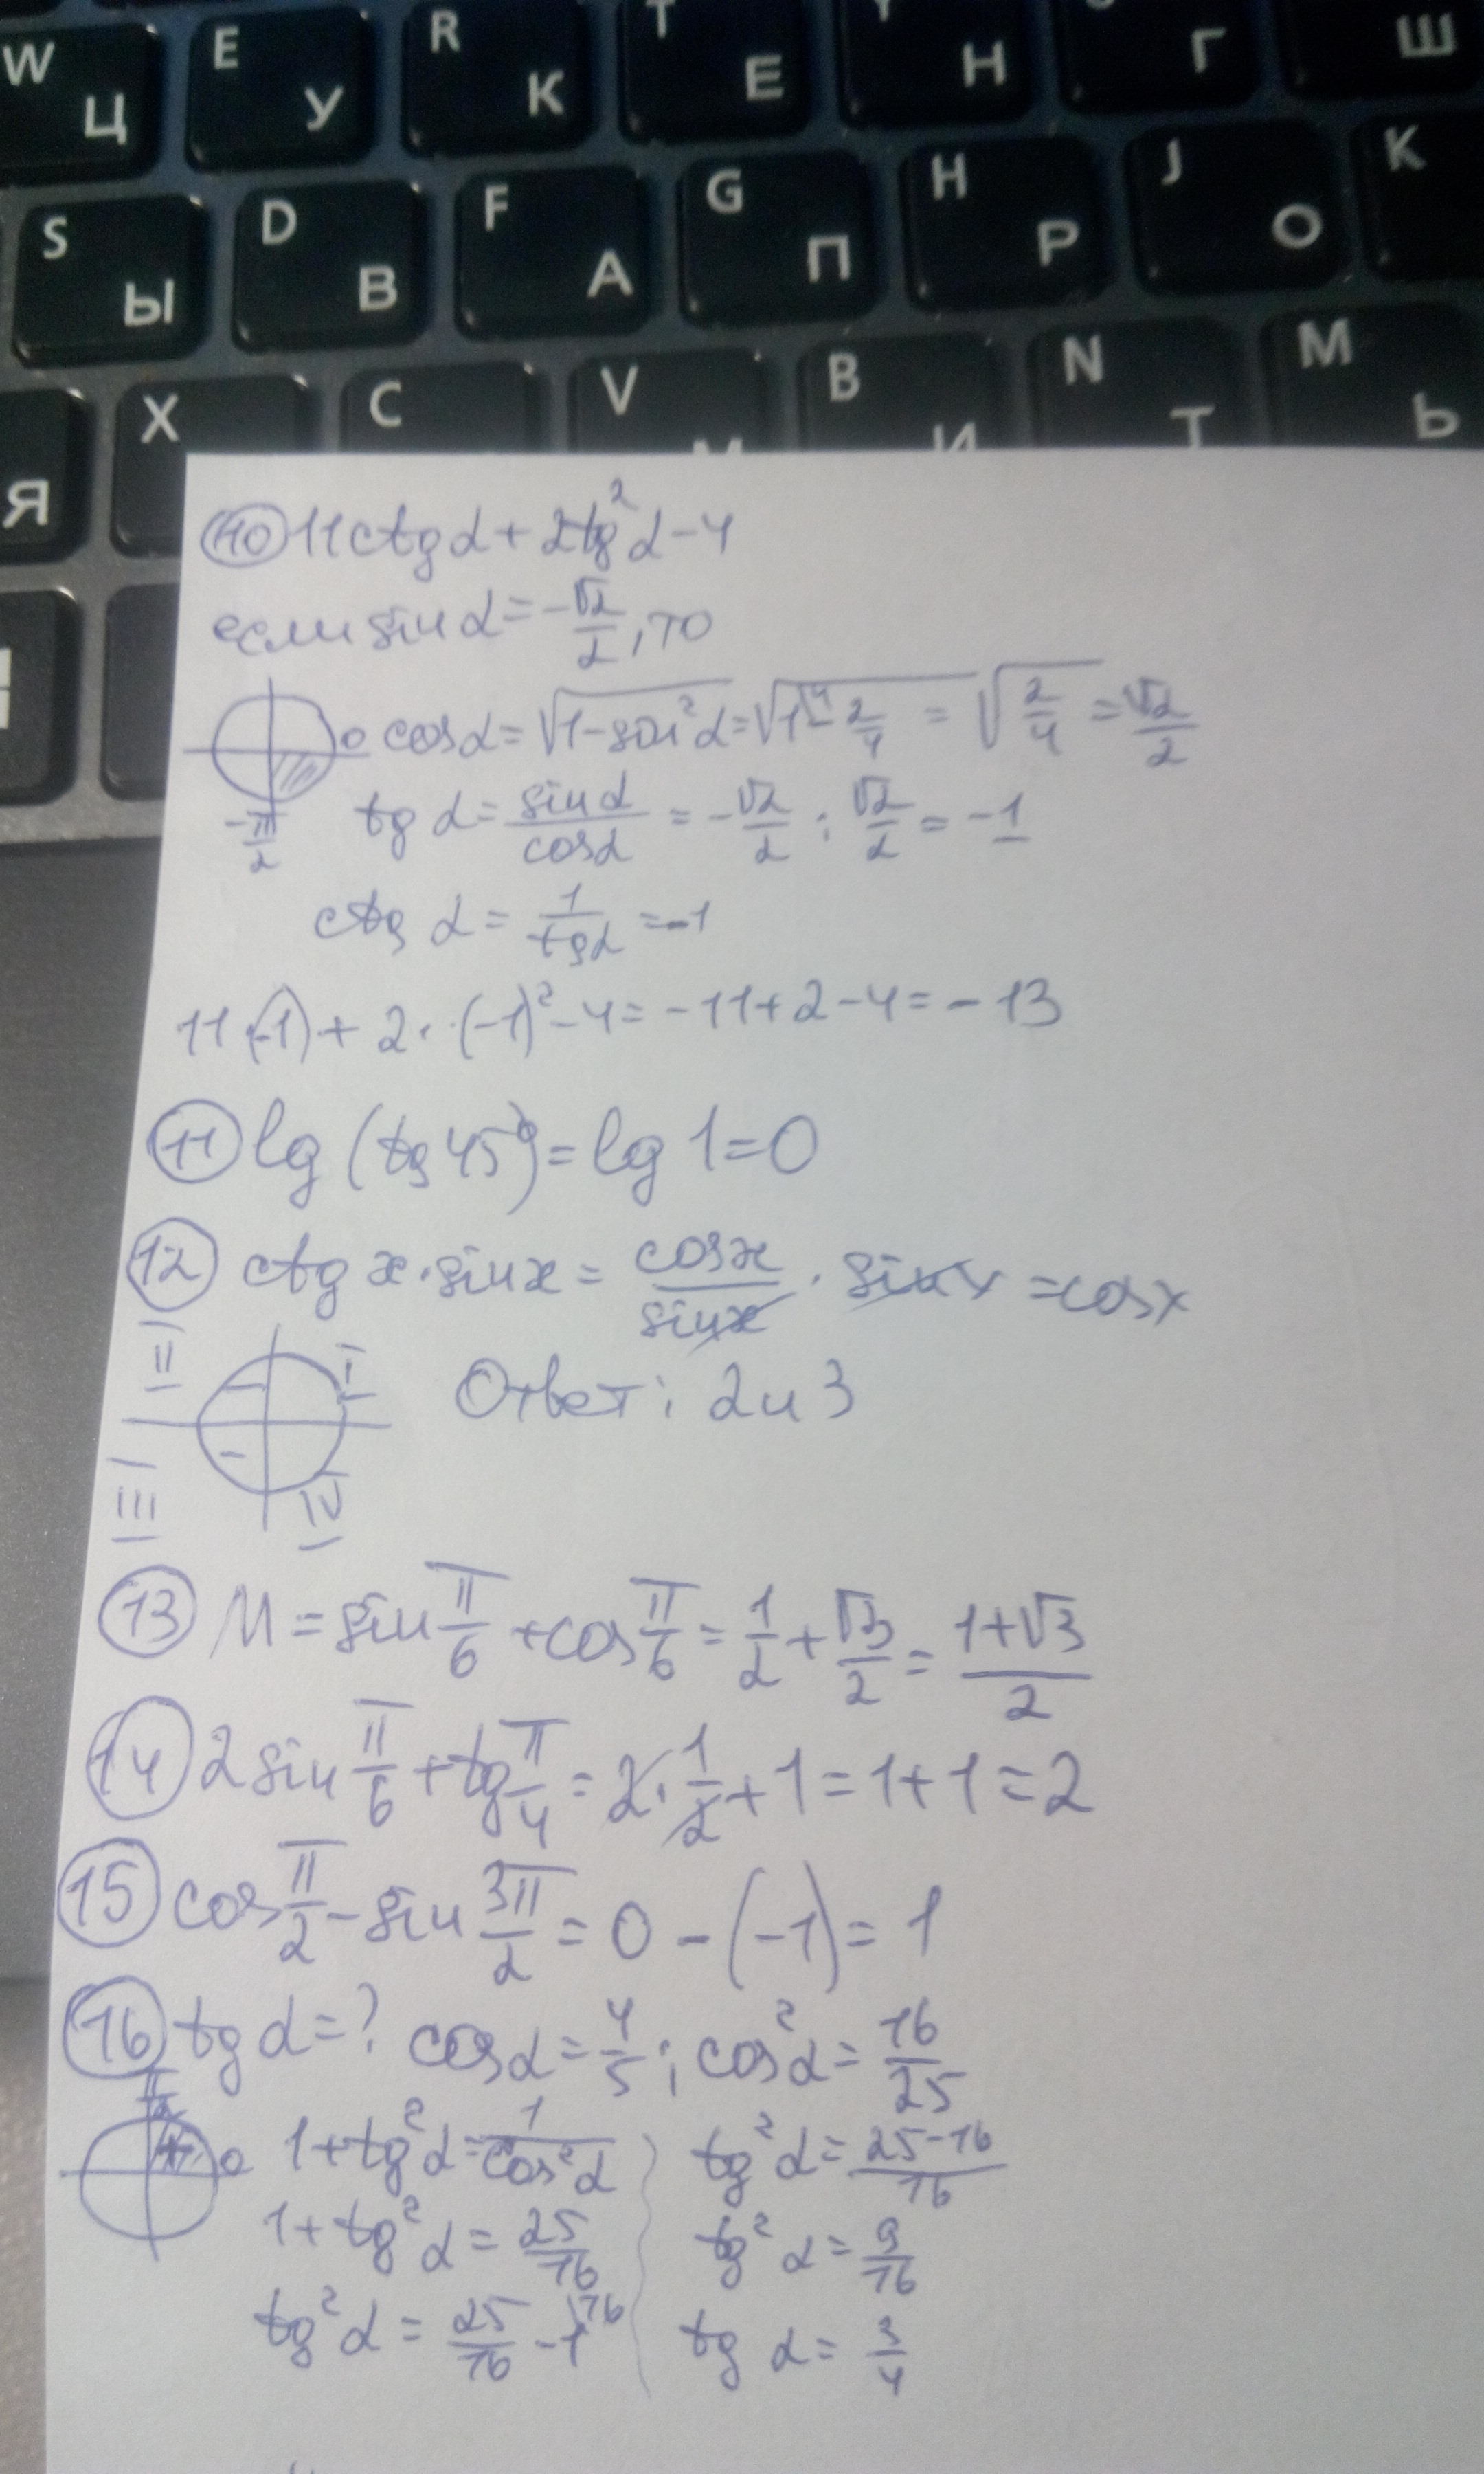 W Ц E У R К T Е Y Н Г Ш
S Ы D В F А G П H Р J О K
Я X C V М B И N Т M Ь
10 11ctgα + 2tg²α - 4
если sin α = -√2/2, то
0 cosα = √(1-sin²α) = √(1⁴ - 2/4) = √(2/4) = √2/2
-π/2 tg α = sinα/cosα = -√2/2 : √2/2 = -1
ctg α = 1/tgα = -1
11·(-1) + 2·(-1)² - 4 = -11 + 2 - 4 = -13
11 lg (tg 45°) = lg 1 = 0
12 ctg x · sinx = cosx/sinx · sinx = cosx
II I Ответ: 2 и 3
- -
III IV
13 M = sin π/6 + cos π/6 = 1/2 + √3/2 = (1+√3)/2
14 2 sin π/6 + tg π/4 = 2 · 1/2 + 1 = 1 + 1 = 2
15 cos π/2 - sin 3π/2 = 0 - (-1) = 1
16 tg α = ? cosα = 4/5; cos²α = 16/25
π/2 0
1 + tg²α = 1/cos²α
1 + tg²α = 25/16
tg²α = 25/16 - 1¹⁶
tg²α = (25-16)/16
tg²α = 9/16
tg α = 3/4